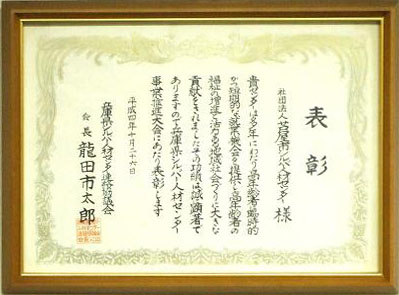 表彰
社団法人芦屋市シルバー人材センター様
貴センターは多年にわたり高年齢者に臨時的
かつ短期的な就業機会を提供し高年齢者の
福祉の増進と活力ある地域社会づくりに大きな
貢献をされましたその功績は誠に顕著で
ありますので兵庫県シルバー人材センター
事業推進大会にあたり表彰します
平成四年十月二十六日
兵庫県シルバー人材センター連絡協議会
会長 龍田市太郎